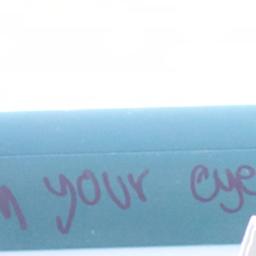 your eye